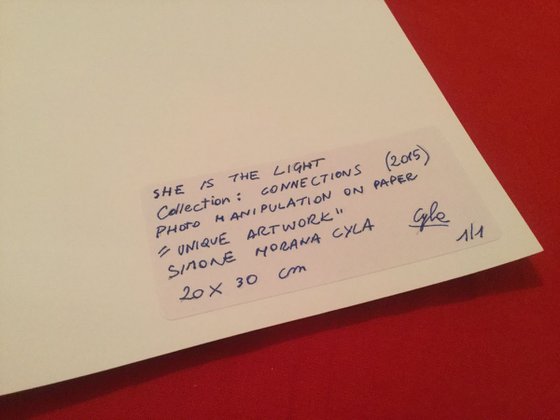 SHE IS THE LIGHT
Collection: CONNECTIONS (2015)
PHOTO MANIPULATION ON PAPER
"UNIQUE ARTWORK"
SIMONE MORANA CYLA Cyla
20 X 30 cm 1/1